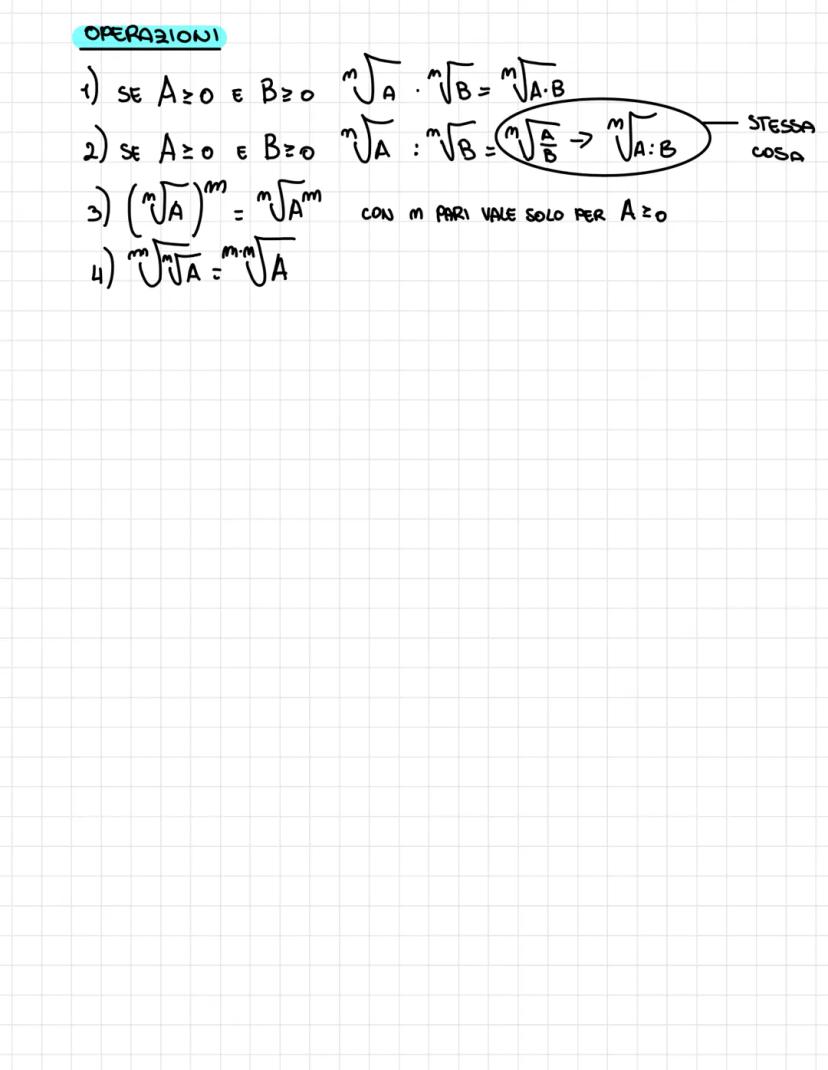 OPERAZIONI
1) SE A≥0 E B≥0 ⁿ√A · ⁿ√B = ⁿ√A·B
2) SE A≥0 E B≥0 ⁿ√A : ⁿ√B = ⁿ√A/B → ⁿ√A:B STESSA COSA
3) (ⁿ√A)ᵐ = ⁿ√Aᵐ CON n PARI VALE SOLO PER A≥0
4) ᵐ√ⁿ√A = ᵐ·ⁿ√A